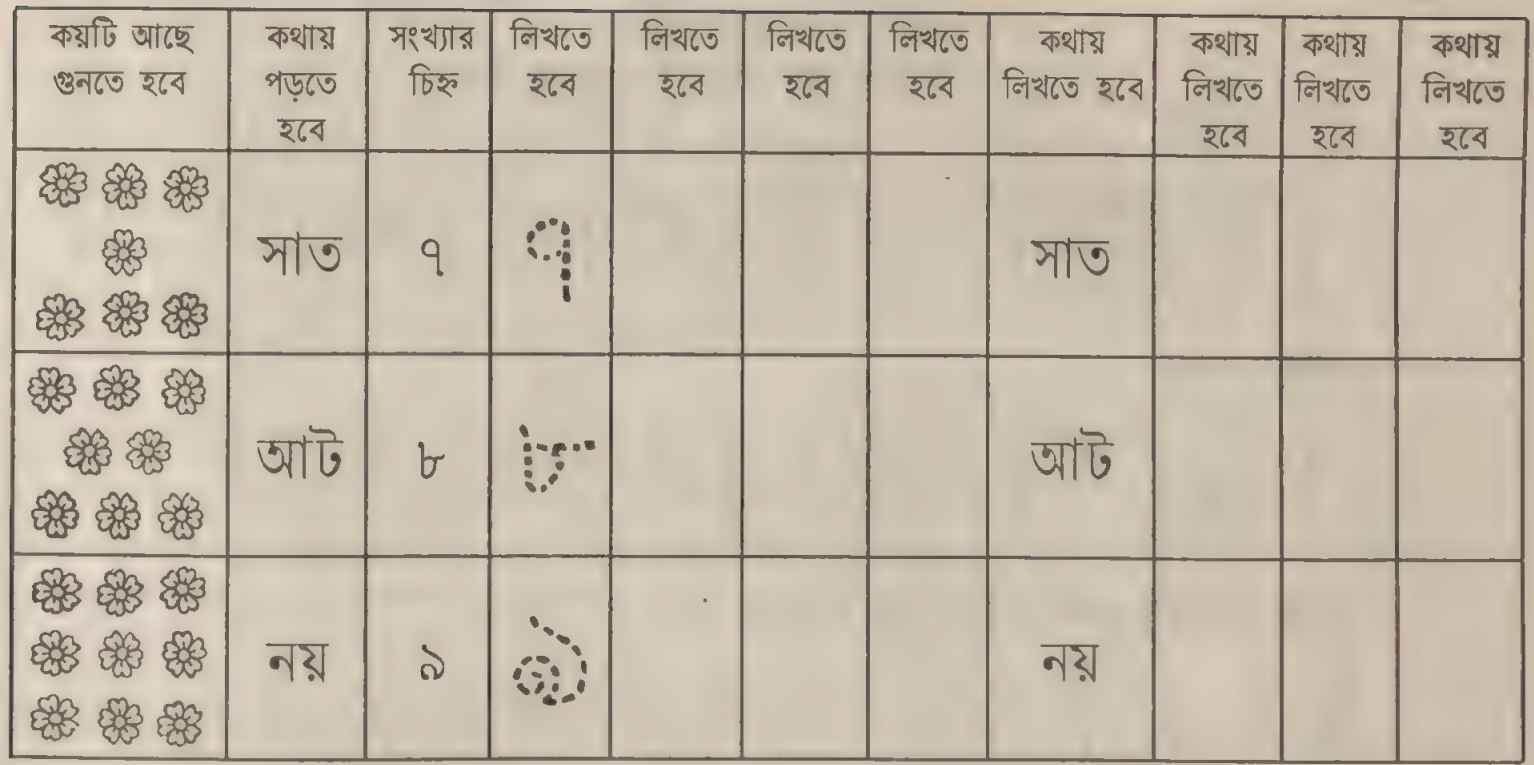 কয়টি আছে গুনতে হবে কথায় পড়তে হবে সংখ্যার চিহ্ন লিখতে হবে লিখতে হবে লিখতে হবে লিখতে হবে কথায় লিখতে হবে কথায় লিখতে হবে কথায় লিখতে হবে কথায় লিখতে হবে
সাত ৭ ৭ সাত
আট ৮ ৮ আট
নয় ৯ ৯ নয়